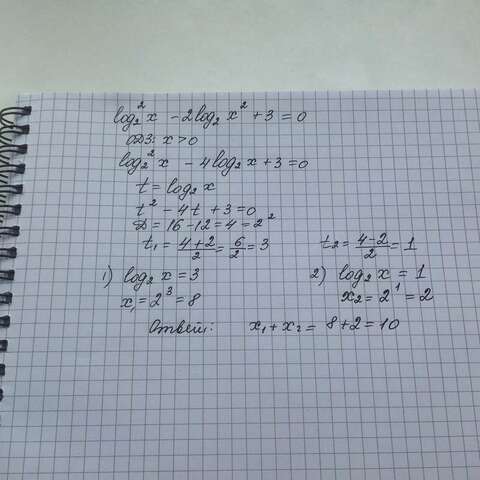 log₂²x - 2log₂x² + 3 = 0
ОДЗ: x > 0
log₂²x - 4log₂x + 3 = 0
t = log₂x
t² - 4t + 3 = 0
Д = 16 - 12 = 4 = 2²
t₁ = (4+2)/2 = 6/2 = 3 t₂ = (4-2)/2 = 1
1) log₂x = 3 2) log₂x = 1
x₁ = 2³ = 8 x₂ = 2¹ = 2
Ответ: x₁ + x₂ = 8 + 2 = 10